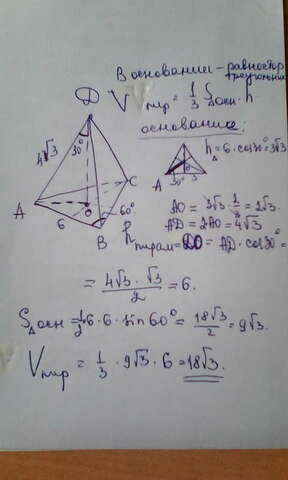 В основании - равностор.
треугольник
V пир = 1/3 S осн · h
основание:
D
4√3
30°
A
O
6
B
C
60°
h
A
30°
3
h△ = 6 · cos30° = 3√3
AO = 3√3 · 2/3 = 2√3.
AD = 2AO = 4√3
h пирам = DO = AD · cos30° =
= 4√3 · √3 / 2 = 6.
S△осн = 1/2 · 6 · 6 · sin 60° = 18√3 / 2 = 9√3.
V пир = 1/3 · 9√3 · 6 = 18√3.